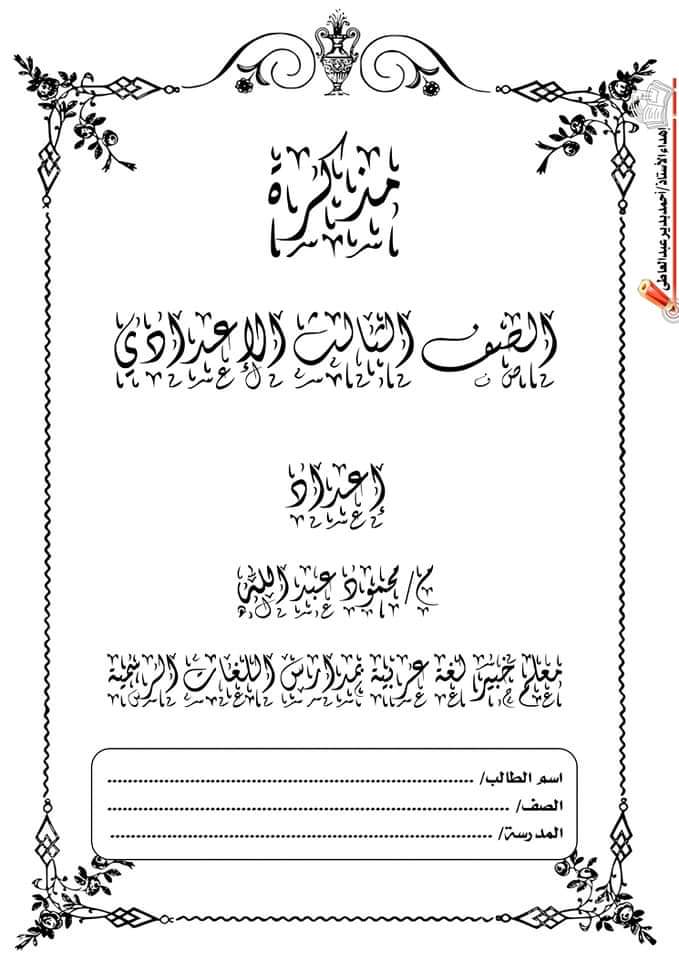 مذكرة
الصف الثالث الإعدادي
إعداد
م/ محمود عبد الله
معلم خبير لغة عربية بمدارس اللغات الرسمية
اسم الطالب/ ................................................................
الصف/ ................................................................
المدرسة/ ................................................................
إهداء الأستاذ/أحمد بدير عبد العاطى